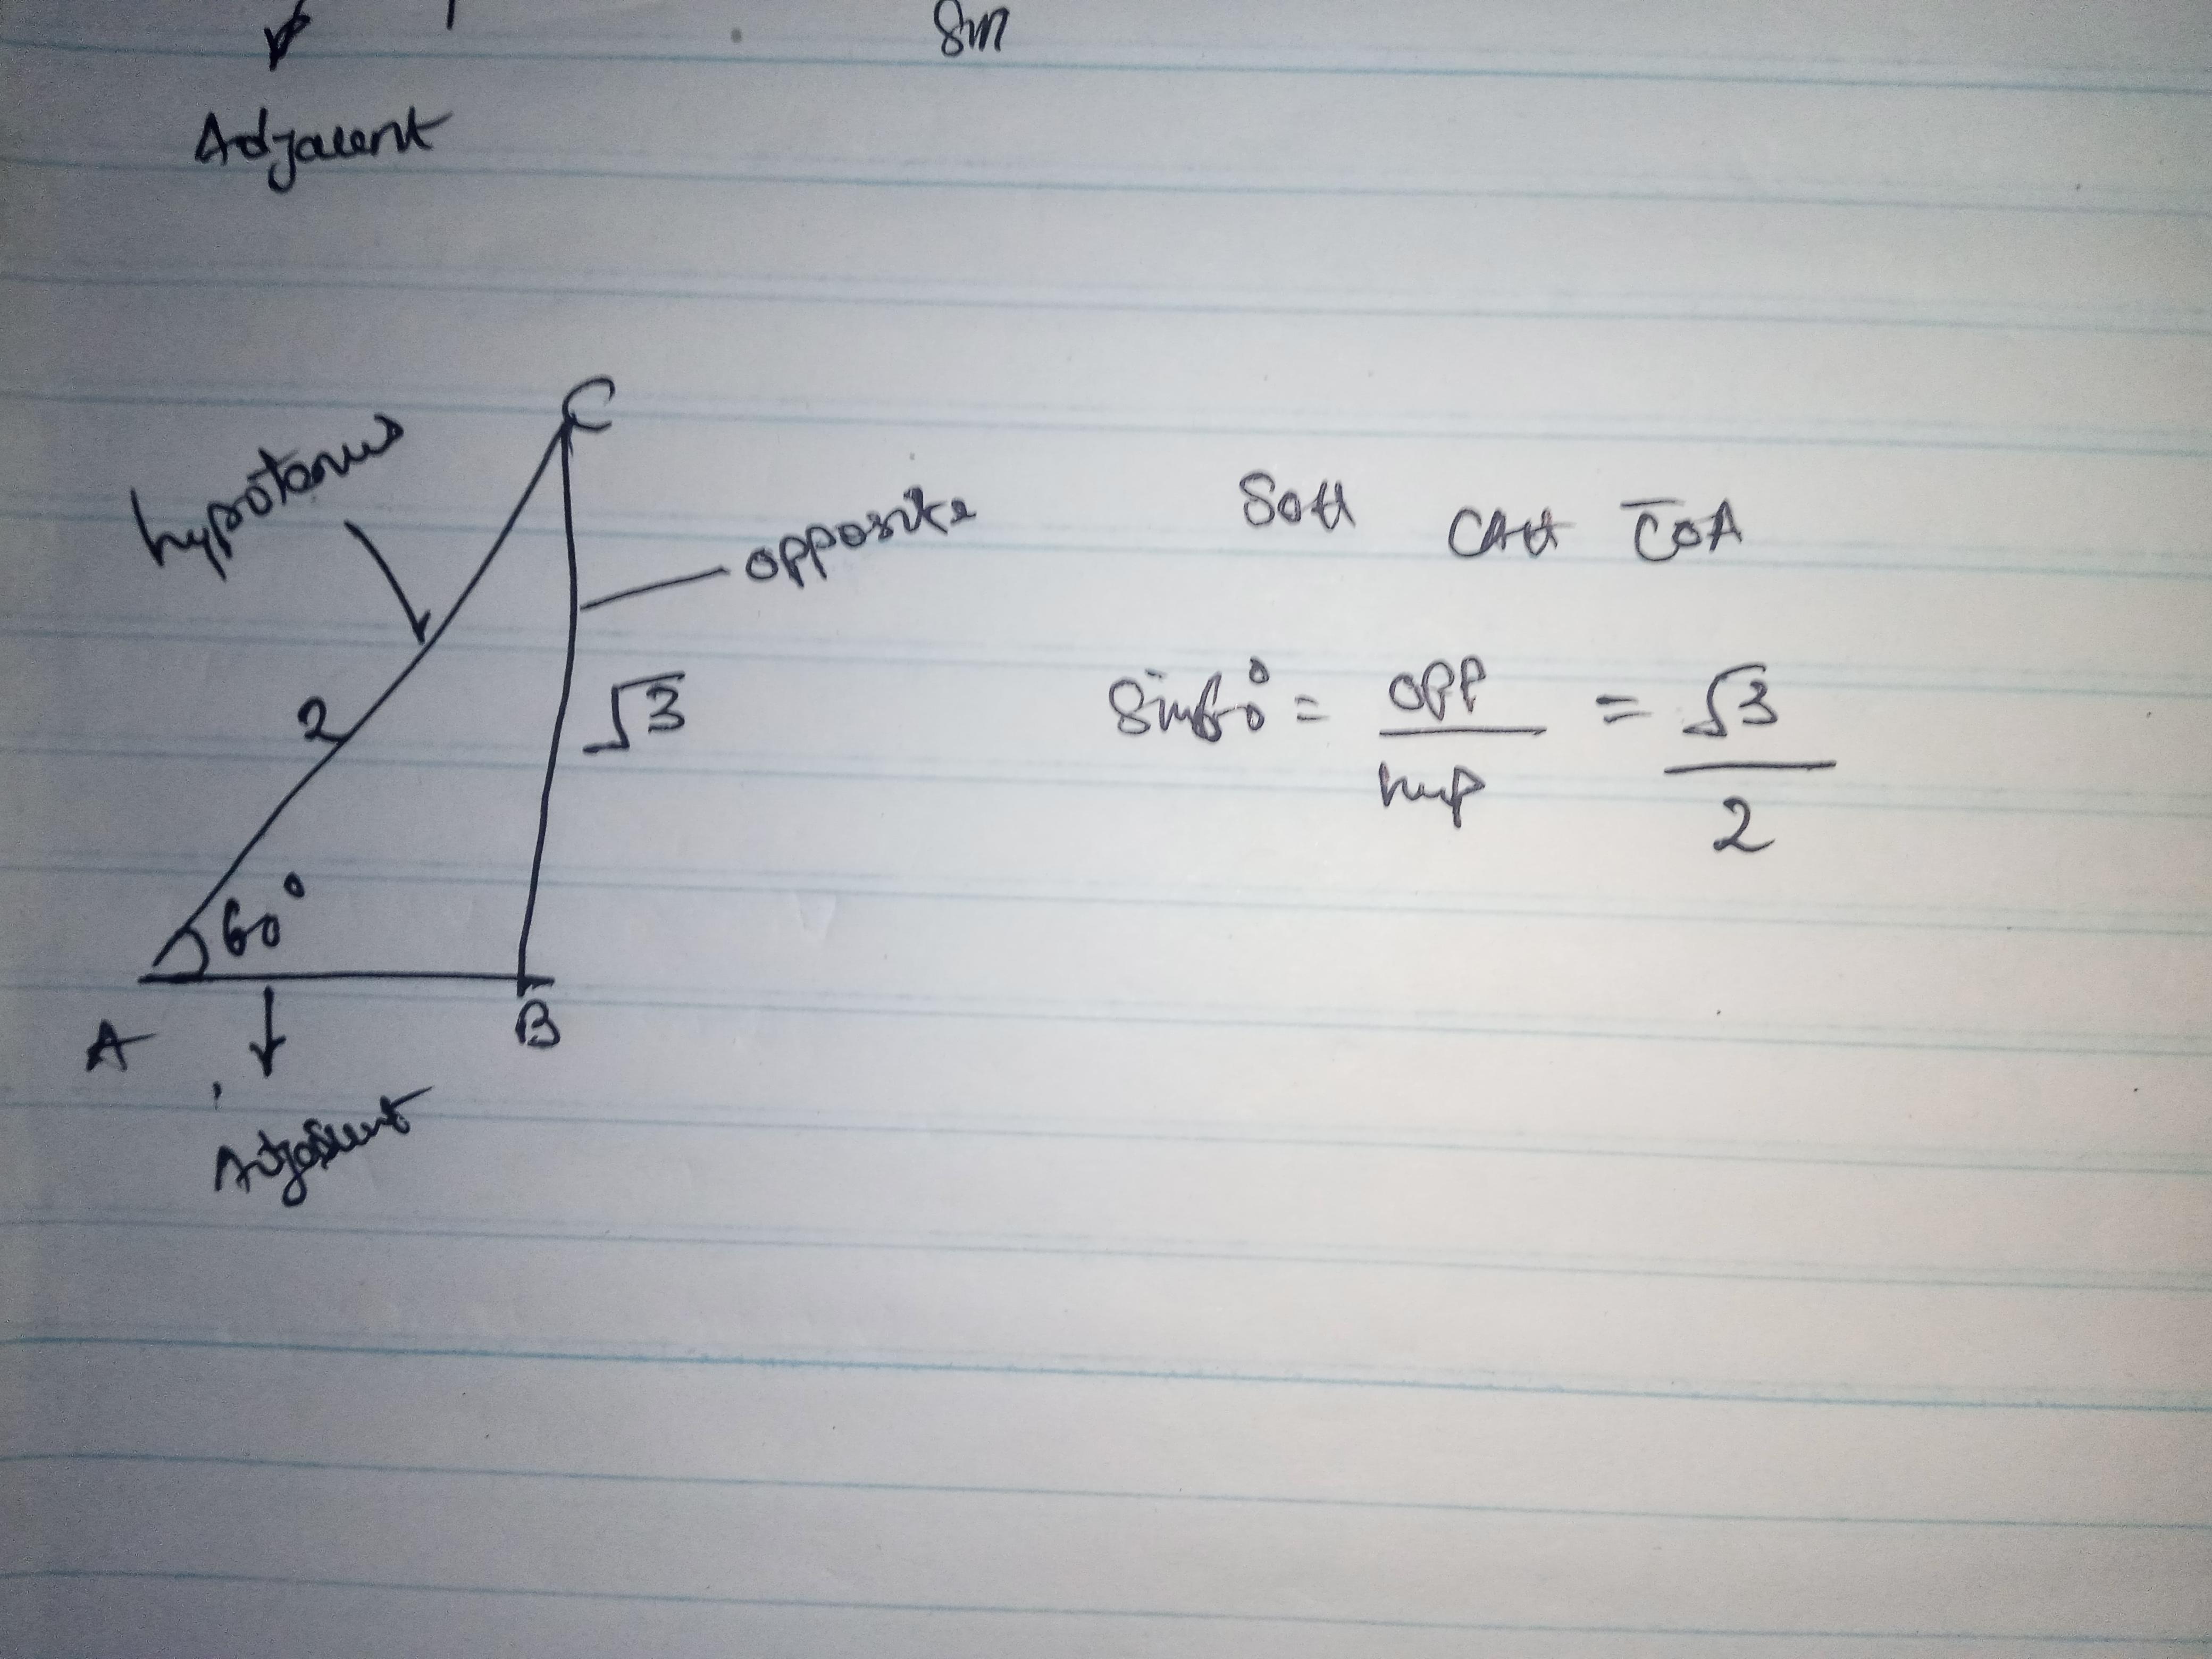 Sin
Adjacent
C
hypotenus
opposite
SOH CAH TOA
2
√3
Sin60° = opp/hyp = √3/2
60°
A
B
Adjacent